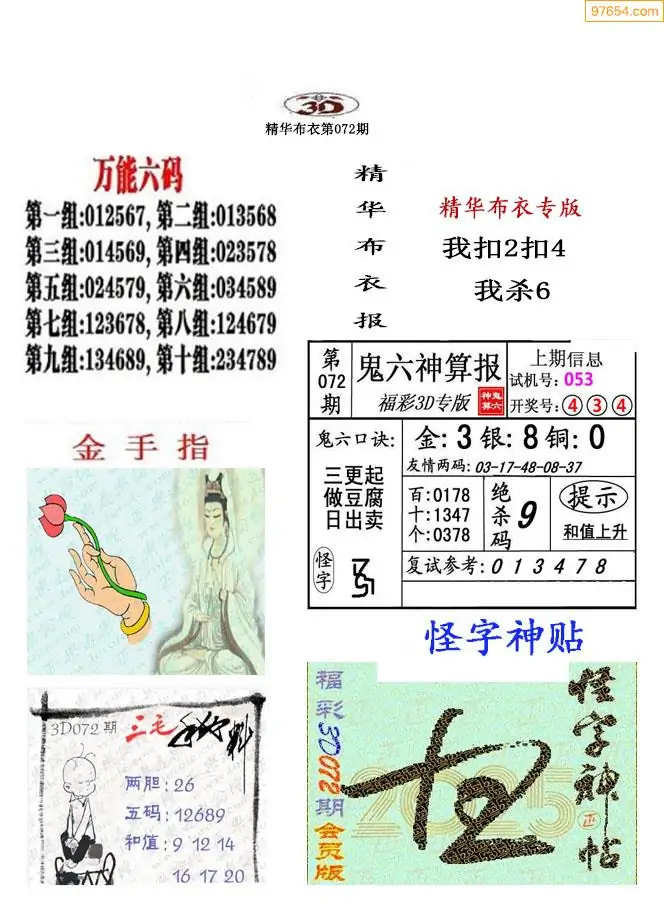 97654.com
3D
精华布衣第072期
万能六码
第一组:012567, 第二组:013568
第三组:014569, 第四组:023578
第五组:024579, 第六组:034589
第七组:123678, 第八组:124679
第九组:134689, 第十组:234789
精华布衣报
精华布衣专版
我扣2扣4
我杀6
第072期
鬼六神算报
福彩3D专版
鬼六神算
上期信息
试机号: 053
开奖号: 4 3 4
鬼六口诀:
三更起
做豆腐
日出卖
怪字
金: 3 银: 8 铜: 0
友情两码: 03-17-48-08-37
百:0178
十:1347
个:0378
绝杀码 9
提示
和值上升
复试参考: 0 1 3 4 7 8
金手指
3D072期
三毛
两胆: 26
五码: 12689
和值: 9 12 14
16 17 20
怪字神贴
福彩3D072期会员版
2025
怪字神帖